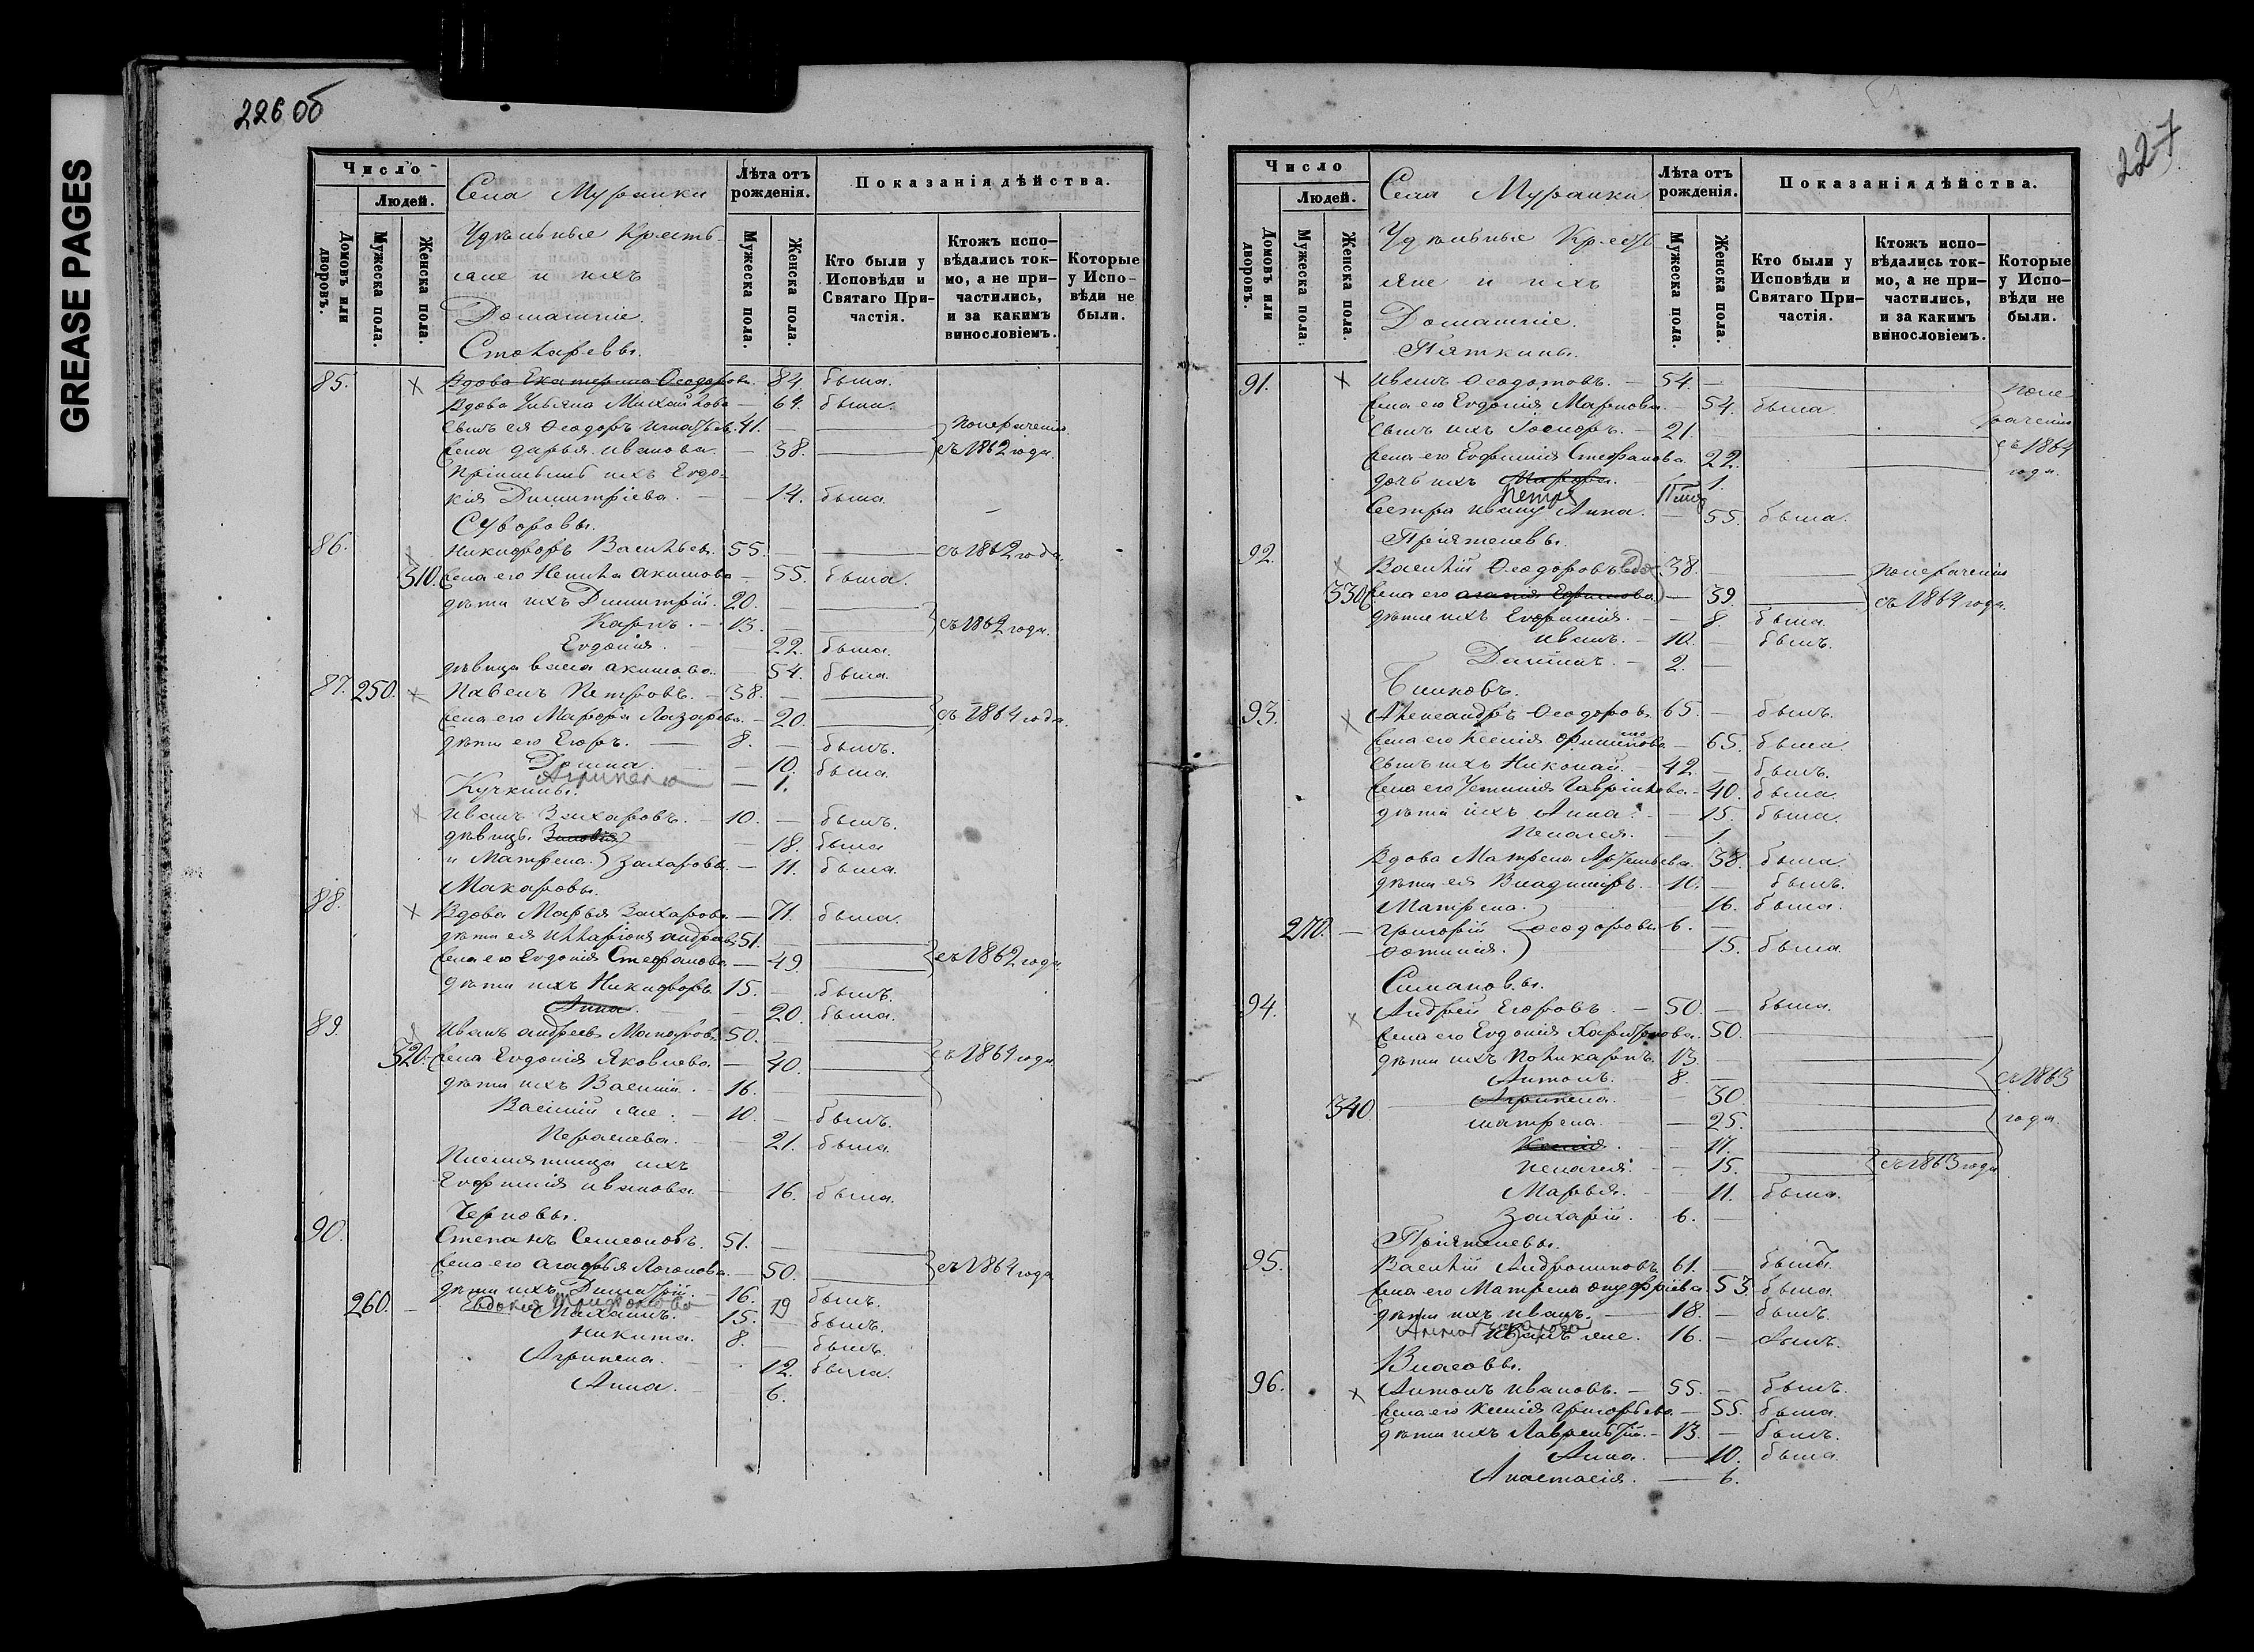 GREASE PAGES
226 об
Число
Людей.
Домовъ или дворовъ.
Мужеска пола.
Женска пола.
Села Муранки
Удѣльные Кресть-
яне и ихъ
Домашніе.
Столяревы.
Лѣта отъ рожденія.
Мужеска пола.
Женска пола.
Показанія дѣйства.
Кто были у Исповѣди и Святаго При-частія.
Ктожъ испо-вѣдались ток-мо, а не при-частились, и за какимъ винословіемъ.
Которые у Испо-вѣди не были.
85. Вдова Екатерина Ѳеодорова. 84. была.
Вдова Ульяна Михайлова 64. была.
сынъ ея Ѳеодоръ Игнатьевъ. 41. понераченію
жена Дарья Иванова. 38. съ 1862 года.
Пріемышъ ихъ Евдо-
кія Димитріева. 14. была
Суворовы.
86. Никифоръ Васильевъ. 55. съ 1862 года.
310. жена его Ненила Акимова 55. была.
дѣти ихъ Димитрій. 20.
Карпъ. 13. съ 1862 года.
Евдокія. 22. была.
дѣвица Акимова. 54. была.
87. 250. Павелъ Петровъ. 38.
жена его Марфа Лазарева. 20. съ 1864 года.
дѣти его Егоръ. 8. былъ.
Домна. 10. была
Агрипена 1.
Кучкины.
Иванъ Захаровъ. 10. былъ.
дѣвицы Зиновія 18. была
и Матрена. Захаровы. 11. была.
Макаровы.
88. Вдова Марья Захарова 71. была.
дѣти ея Илларіонъ Андреевъ 51.
жена его Евдокія Стефанова 49. съ 1862 года.
дѣти ихъ Никифоръ 15. былъ.
Анна. 20. была.
89. Иванъ Андреевъ Макаровъ 50.
320. жена Евдокія Яковлева. 40. съ 1864 года.
дѣти ихъ Василій. 16.
Василій же. 10. былъ.
21. была.
Племянница ихъ
Евфимія Иванова. 16. была.
Черновы.
90. Степанъ Семеоновъ. 51.
жена его Агафья Логонова. 50. съ 1864 года
дѣти ихъ Димитрій. 16. былъ.
Евдокія Трифонова 19
260. Михаилъ. 15. былъ.
Никита. 8. былъ.
Агрипена. 12. была.
Анна. 6.
227
Число
Людей.
Домовъ или дворовъ.
Мужеска пола.
Женска пола.
Села Муранки
Удѣльные Кресть
яне и ихъ
Домашніе.
Пяткины.
Лѣта отъ рожденія.
Мужеска пола.
Женска пола.
Показанія дѣйства.
Кто были у Исповѣди и Святаго При-частія.
Ктожъ испо-вѣдались ток-мо, а не при-частились, и за какимъ винословіемъ.
Которые у Испо-вѣди не были.
91. Иванъ Ѳеодотовъ. 54. поне-
жена его Евдокія Маркова. 54. была. раченію
сынъ ихъ Іосифъ. 21. съ 1864
жена его Евфимія Стефанова. 22. года.
дочь ихъ 1.
Петръ
сестра Ивану Анна. 55. была.
Пріятелевы.
92. Василій Ѳеодоровъ вдо 38. понераченію
330. жена его Агапія Ефимова 39. съ 1864 года.
дѣти ихъ Евфимія. 8. была.
Иванъ. 10. былъ.
Даніилъ. 2.
93. Александръ Ѳеодоровъ 65. былъ.
жена его Ксенія Филипова 65. была.
сынъ ихъ Николай. 42. былъ.
жена его Устинія Гаврилова. 40. была.
дѣти ихъ Анна. 15. была.
Пелагея. 1.
Вдова Матрена Артемьева. 38. была.
дѣти ея Владиміръ. 10. былъ.
Матрена. 16. была.
270. Григорій Ѳеодоровы 6.
Фотинія. 15. была.
Симановы.
94. Андрей Егоровъ. 50. была.
жена его Евдокія Харитонова. 50.
дѣти ихъ Поликарпъ. 13.
Антонъ. 8. съ 1863
340 Агрипена. 30.
Матрена. 25. года.
Ксенія. 17.
Пелагея. 15. съ 1863 года
Марья. 11. была.
Захарій. 6.
Пріятелевы.
95. Василій Андрониковъ 61. былъ.
жена его Матрена Онуфріева. 53. была.
дѣти ихъ Иванъ. 18. былъ.
Анна Захарова
Иванъ же. 16. былъ.
Власовы.
96. Антонъ Ивановъ. 55. былъ.
жена его Ксенія Григорьева. 55. была.
дѣти ихъ Лаврентій. 13. былъ.
Анна. 10. была.
Анастасія. 6.